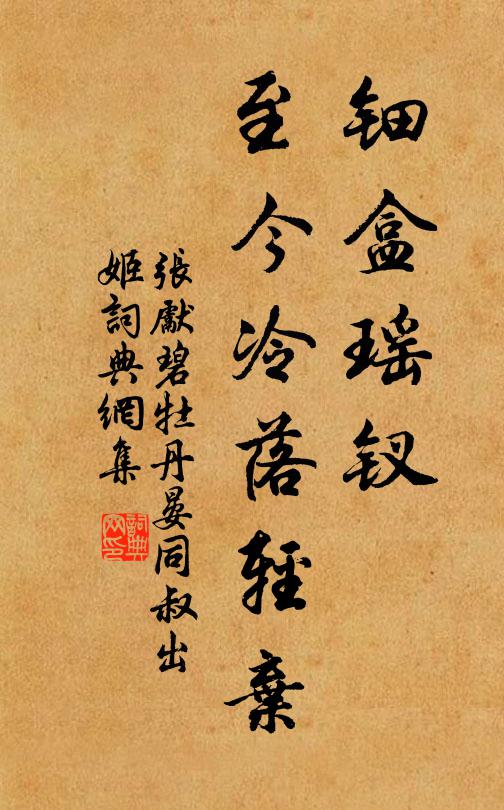 钿盒瑶钗
至今冷落輕棄
張獻碧牡丹晏同叔出
姬詞典網集
詞典
网印